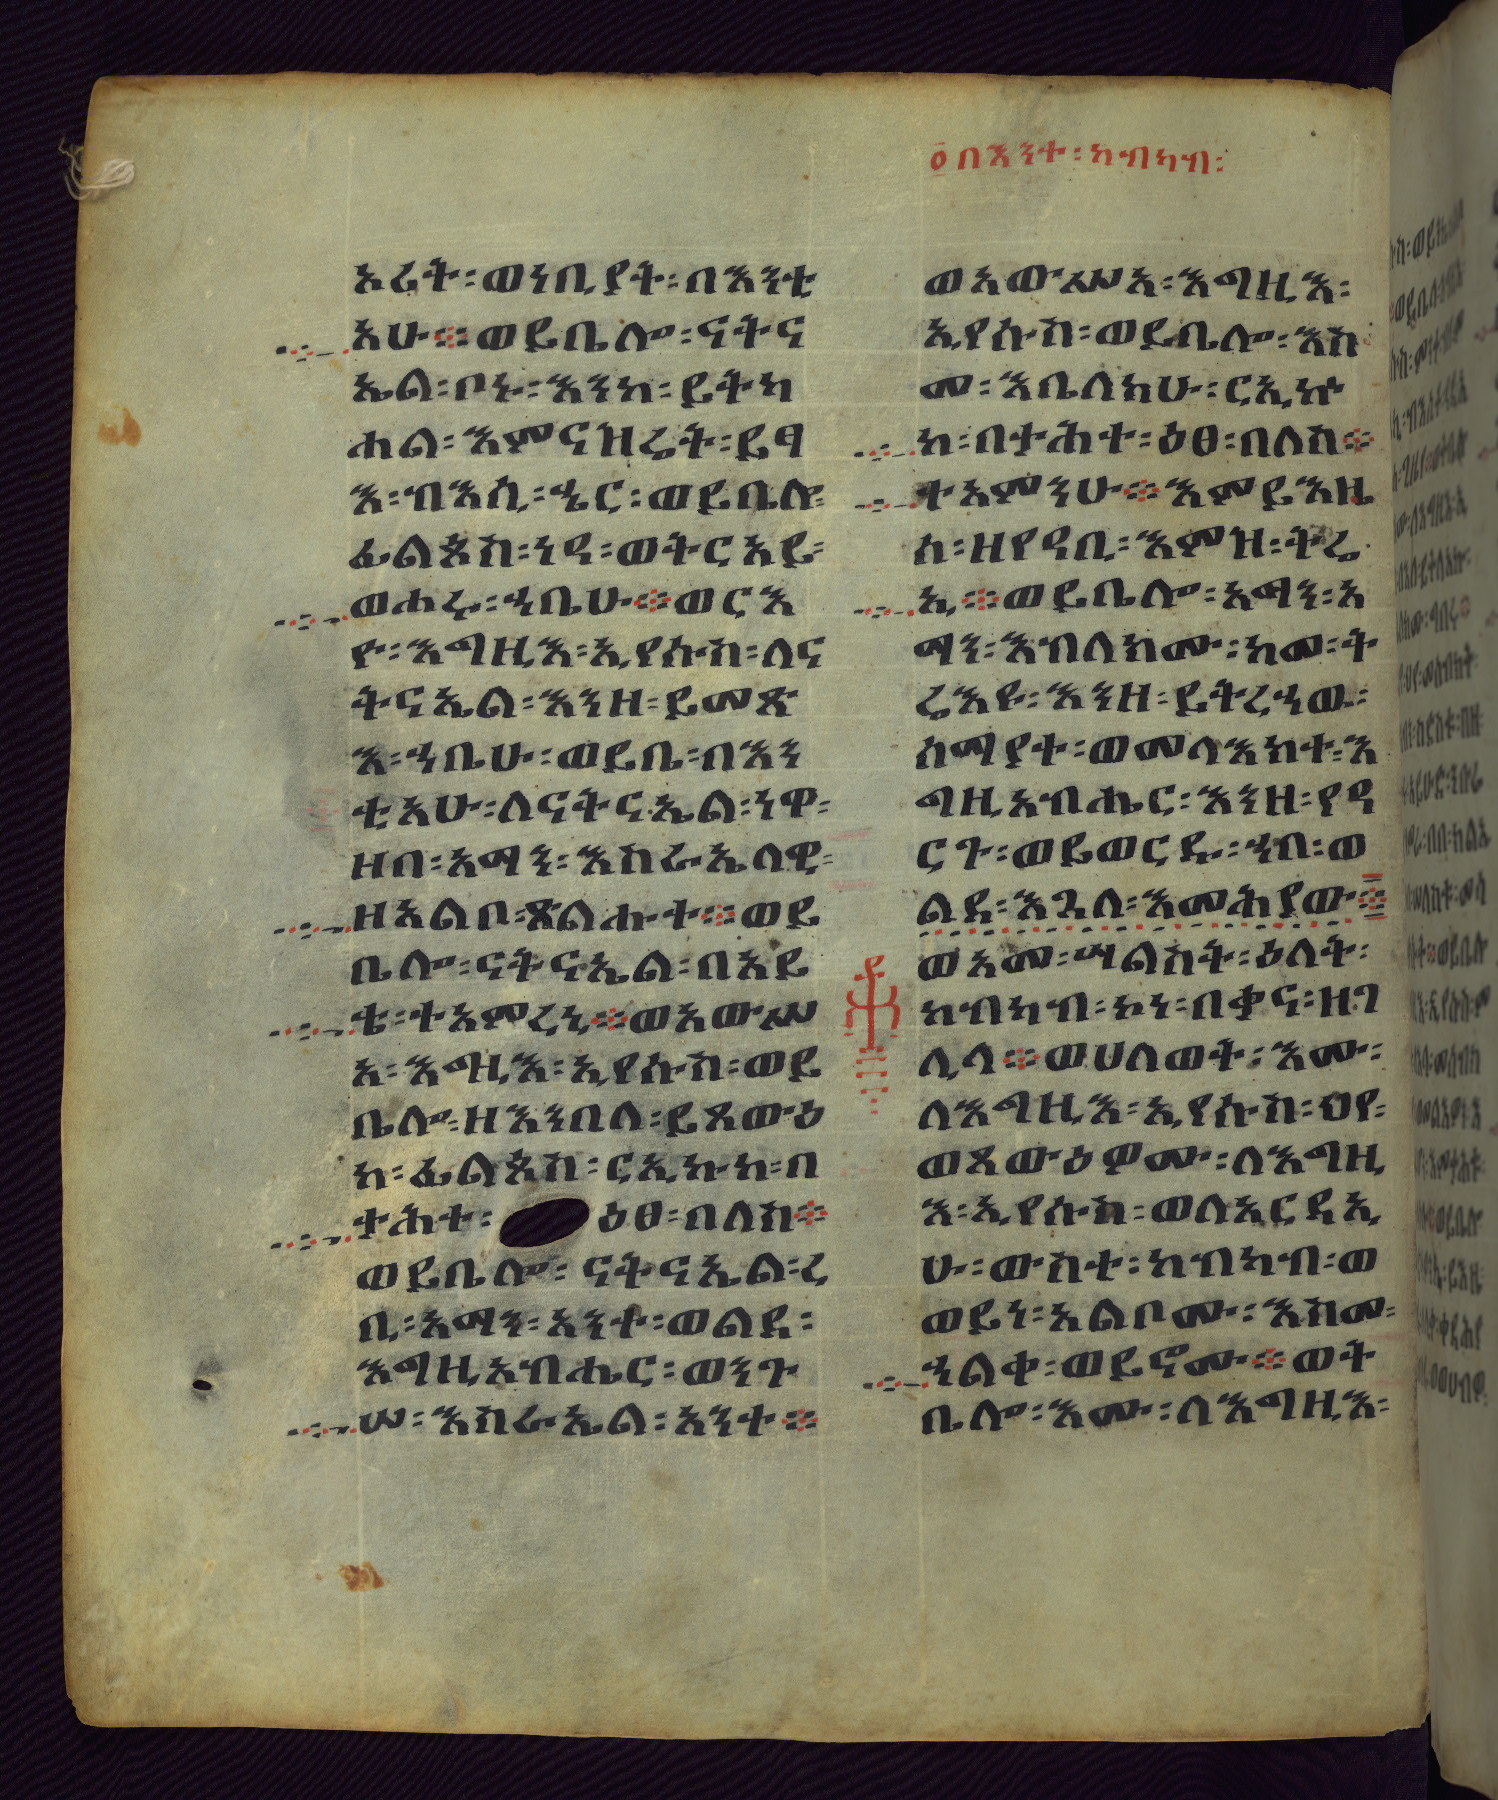 ፩በእንተ፡ካብካብ፡
እሪት፡ወነቢያት፡በእንቲ
አሁ፨ወይቤሎ፡ናትና
ኤል፡ቦኑ፡እንከ፡ይትከ
ሐል፡እምናዝሬት፡ይፃ
እ፡ብእሲ፡ኄር፡ወይቤሎ፡
ፊልጶስ፡ነዓ፡ወትርአይ፡
ወሐረ፡ኀቤሁ፨ወርእ
ዮ፡እግዚእ፡ኢየሱስ፡ለና
ትናኤል፡እንዘ፡ይመጽ
እ፡ኀቤሁ፡ወይቤ፡በእን
ቲአሁ፡ለናትናኤል፡ነዋ፡
ዘበ፡አማን፡እስራኤላዊ፡
ዘአልቦ፡ጽልሑተ፨ወይ
ቤሎ፡ናትናኤል፡በአይ
ቴ፡ተአምረኒ፨ወአውሥ
አ፡እግዚእ፡ኢየሱስ፡ወይ
ቤሎ፡ዘእንበለ፡ይጸውዕ
ከ፡ፊልጶስ፡ርኢኩከ፡በ
ታሕተ፡ዕፀ፡በለስ፨
ወይቤሎ፡ናትናኤል፡ረ
ቢ፡አማን፡አንተ፡ወልደ፡
እግዚአብሔር፡ወንጉ
ሠ፡እስራኤል፡አንተ፨
ወአውሥአ፡እግዚእ፡
ኢየሱስ፡ወይቤሎ፡እስ
መ፡እቤለከሁ፡ርኢኩ
ከ፡በታሕተ፡ዕፀ፡በለስ፨
ተአምንሁ፨እምይእዜ
ሰ፡ዘየዓቢ፡እምዝ፡ትሬ
ኢ፨ወይቤሎ፡አማን፡አ
ማን፡እብለክሙ፡ከመ፡ት
ሬእዩ፡እንዘ፡ይትረኀው፡
ሰማያተ፡ወመላእክተ፡እ
ግዚአብሔር፡እንዘ፡የዓ
ርጉ፡ወይወርዱ፡ኀበ፡ወ
ልደ፡እጓለ፡እመሕያው፨
ወአመ፡ሣልስት፡ዕለት፡
ከብካብ፡ኮነ፡በቃና፡ዘገ
ሊላ፨ወሀለወት፡እሙ፡
ለእግዚእ፡ኢየሱስ፡ህየ፡
ወጸውዕዎሙ፡ለእግዚ
እ፡ኢየሱስ፡ወለአርዳኢ
ሁ፡ውስተ፡ከብካብ፡ወ
ወይነ፡አልቦሙ፡እስመ፡
ኀልቀ፡ወይኖሙ፨ወት
ቤሎ፡እሙ፡ለእግዚእ፡